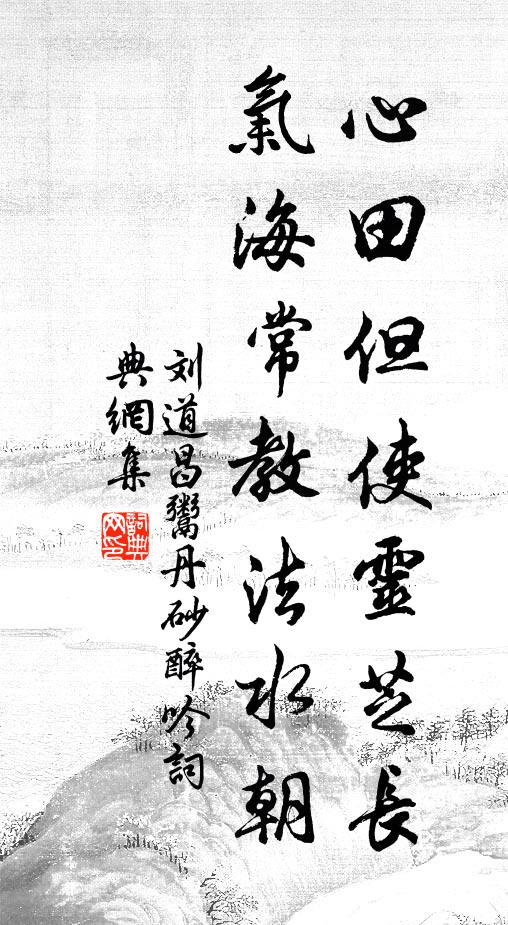 心田但使靈芝長
氣海常教法水朝
刘道昌鬻丹砂醉吟詞
典網集
詞典